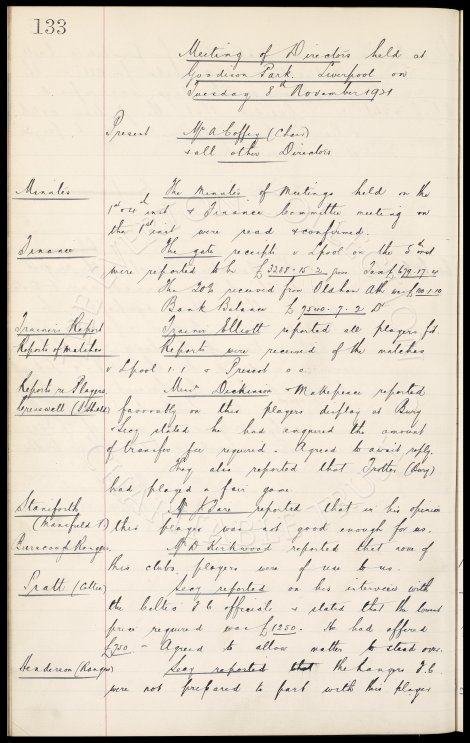 133
Meeting of Directors held at
Goodison Park, Liverpool on
Tuesday 8th November 1921
Present Mr A Coffey (Chair)
& all other Directors
Minutes The minutes of Meetings held on the
1st & 4th inst & Finance Committee meeting on
the 1st inst were read & confirmed.
Finance The gate receipts v L'pool on the 5th inst
were reported to be £3208-15-2 Tax £679-17-4
The 20% received from Oldham Ath was
Bank Balance £7540-7-2 Dr
Trainers Report Trainer Elliott reported all players fit.
Reports of Matches Reports were received of the matches
v L'pool 1.1 & Prescot
Reports re Players Messrs Dickinson & Makepeace reported
Cresswell (S Shields) favourably on this players display at Bury
& Secy stated he had enquired the amount
of transfer fee required. Agreed to await reply.
They also reported that Trotter (Bury)
had played a fair game.
Staniforth Mr Clare reported that in his opinion
(Mansfield T) this player was not good enough for us.
Mr D Kirkwood reported that none of
this clubs players were of use to us.
Pratt (Celtic) Secy reported on his interview with
the Celtic F.C officials & stated that the lowest
price required was £1250. He had offered
£750 - Agreed to allow matter to stand over.
Henderson (Rangers) Secy reported that the Rangers F.C.
were not prepared to part with this player